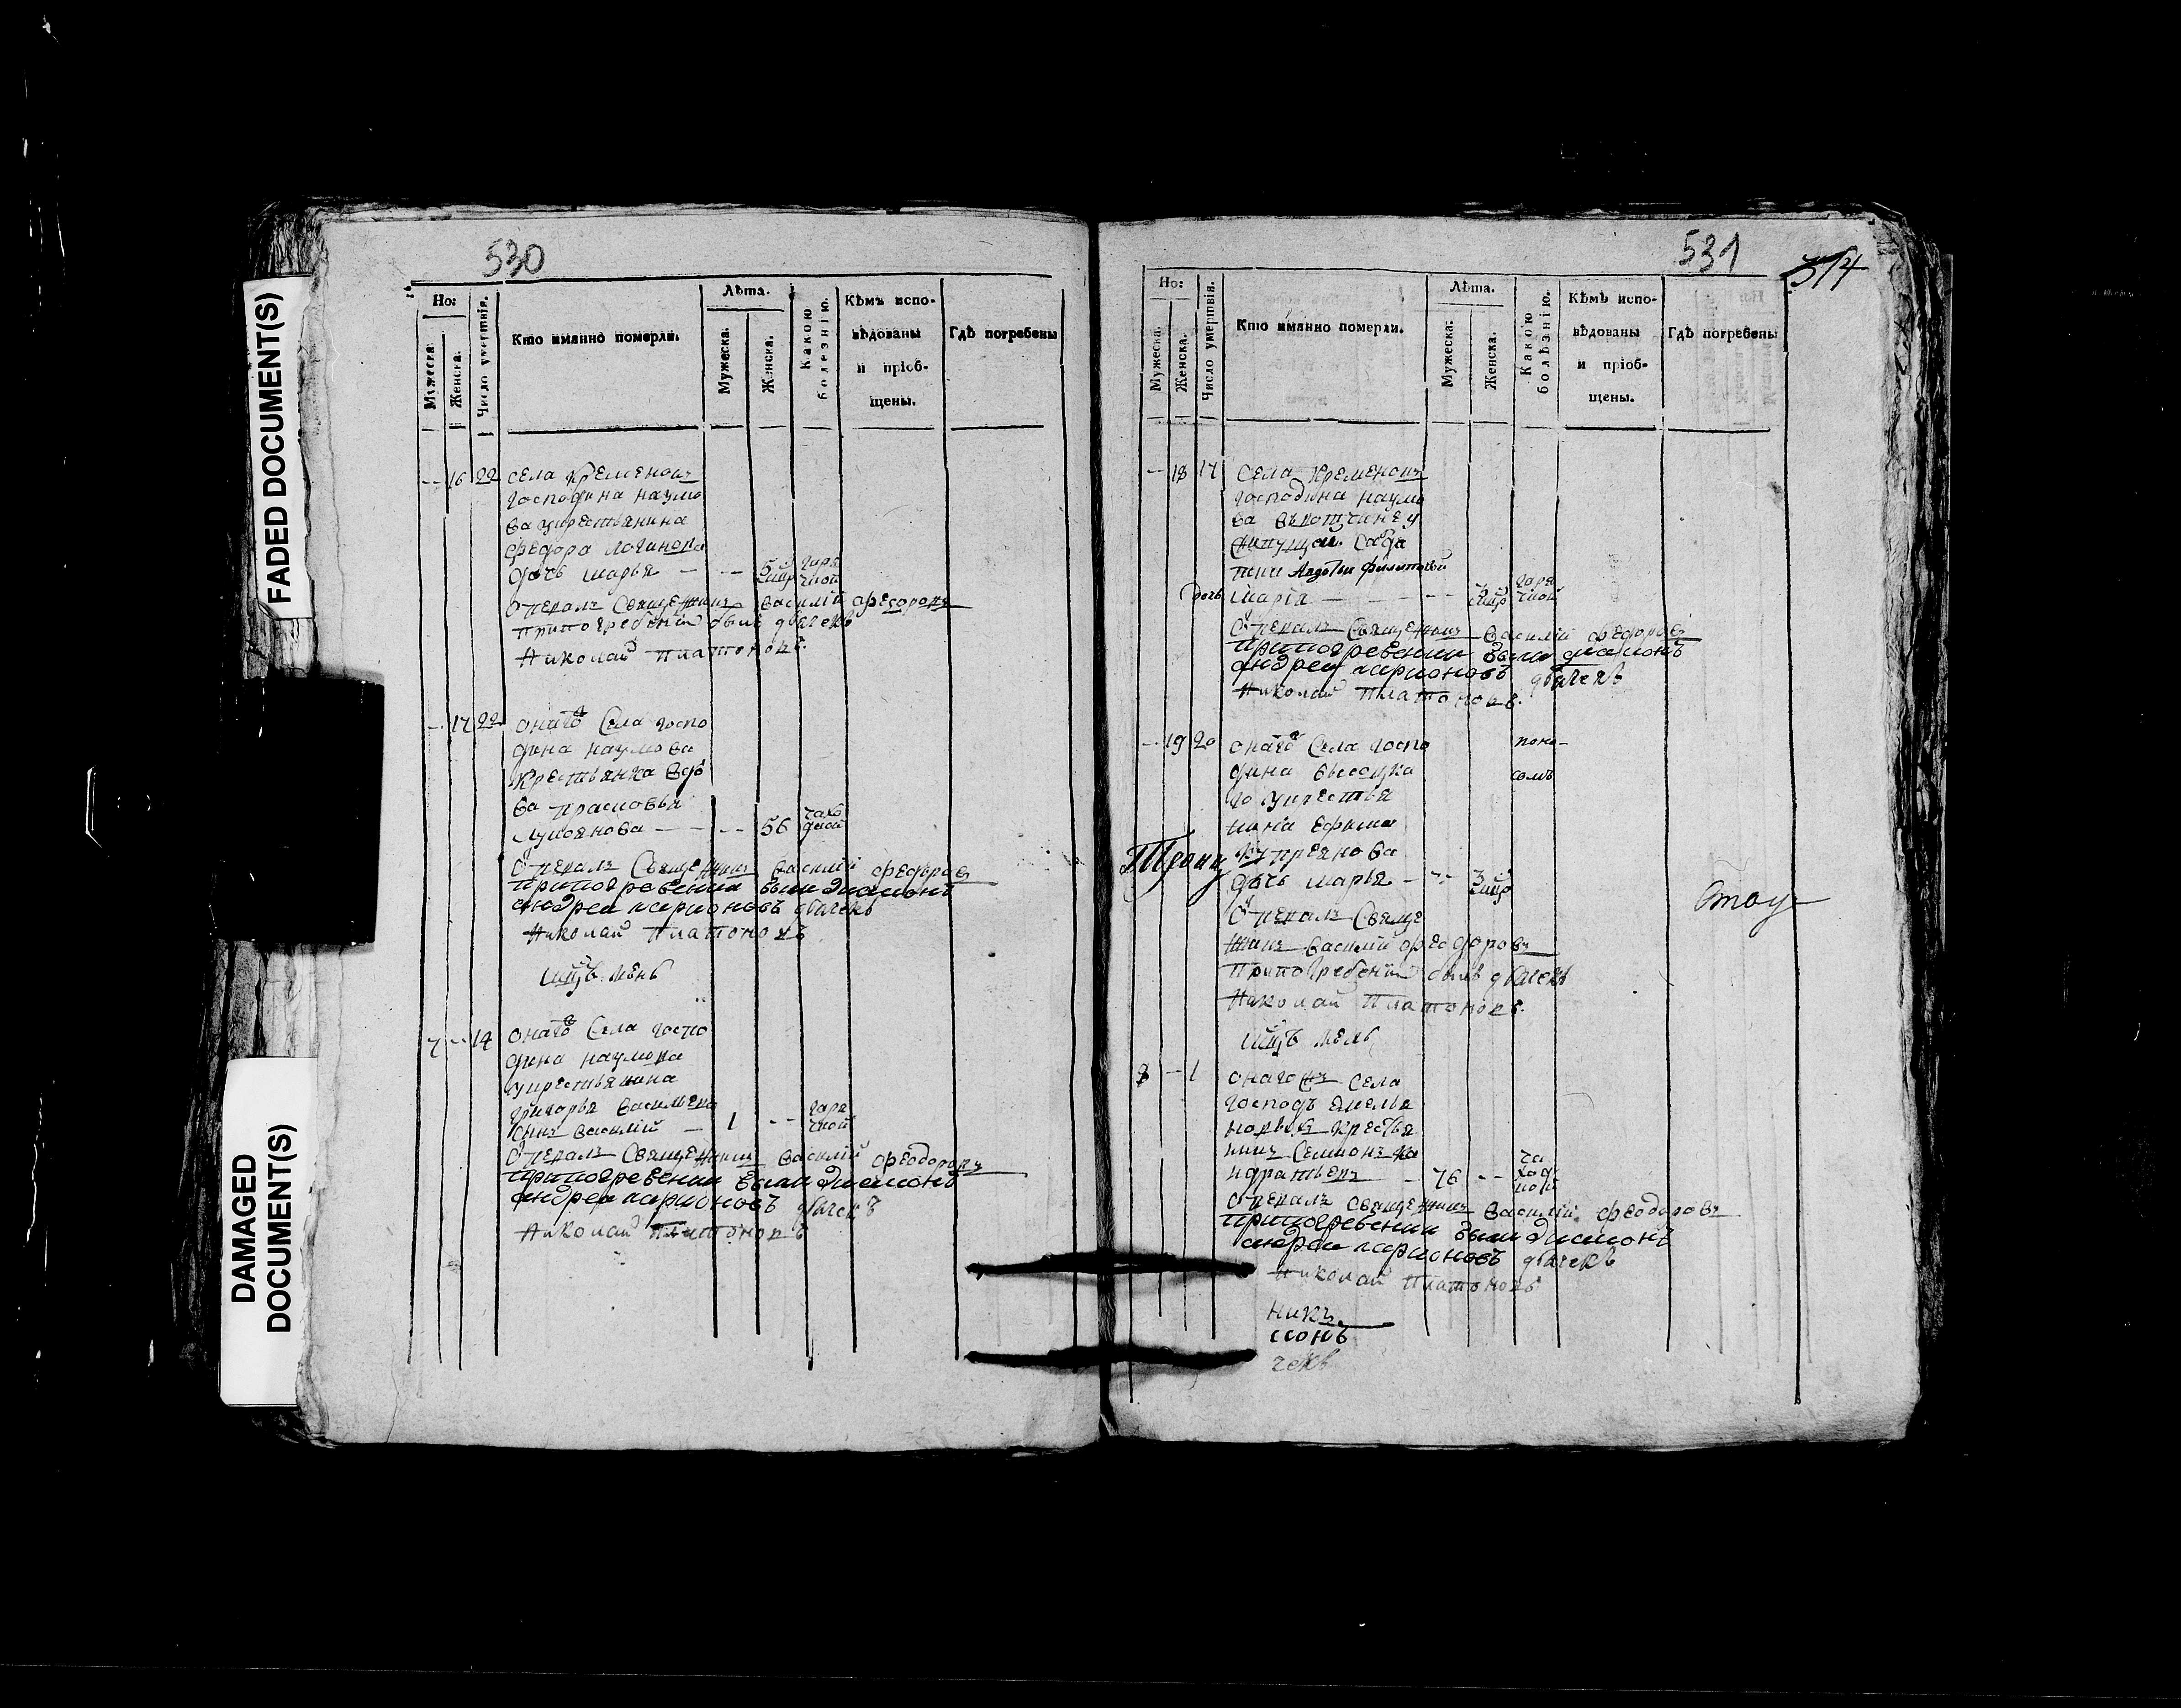 FADED DOCUMENT(S)
DAMAGED
DOCUMENT(S)
530
Но:
Мужеска.
Женска.
Число умертвія.
Кто имянно померли.
Лѣта.
Мужеска.
Женска.
Какою
болезнію.
Кѣмъ испо-
вѣдованы
и пріоб-
щены.
Гдѣ погребены
-- 16 22 села Кременокъ
господина наумо
ва укрестьянина
федора логинова
дочь марья — -- 5 горя
чкой
Отпевалъ Священникъ василій феодоровъ
Припогребеніи былъ дьячекъ
Николай Платоновъ.
-- 17 22 онаго Села госпо
дина наумова
Крестьянка вдо
ва Прасковья
Лукоянова — -- 56
Отпевалъ Священникъ василій феодоровъ
припогребении были диаконъ
андрей ларионовъ дьячекъ
Николай Платоновъ
7 -- 14 онаго Села госпо
дина наумова
укрестьянина
григорья васильева
Сынъ василий — 1 -- горя
чкой
Отпевалъ Священникъ василій феодоровъ
припогребении были диаконъ
андрей ларионовъ дьячекъ
Николай Платоновъ
531
314
Но:
Мужеска.
Женска.
Число умертвія.
Кто имянно померли.
Лѣта.
Мужеска.
Женска.
Какою
болѣзнію.
Кѣмъ испо-
вѣдованы
и пріоб-
щены.
Гдѣ погребены
-- 18 17 Села Кременокъ
господина наумо
ва
Авдотьи филиповой
дочь Марія — -- горя
чкой
Отпевалъ Священникъ василій федоровъ
припогребении были диаконъ
андрей ларионовъ дьячекъ
Николай Платоновъ.
-- 19 20 онаго Села госпо поно-
дина высоцка сомъ
го укрестья
нина ефима
купреянова
дочь марья — -- 3
Отпевалъ Священ
никъ василий феодоровъ
Припогребеніи былъ дьячекъ
Николай Платоновъ.
8 -- 1 онагожъ Села
господъ
кресться
нинъ Семионъ
76 --
Отпевалъ священникъ василій феодоровъ
припогребении были диаконъ
андрей ларионовъ дьячекъ
Николай Платоновъ
никъ
конъ
чекъ